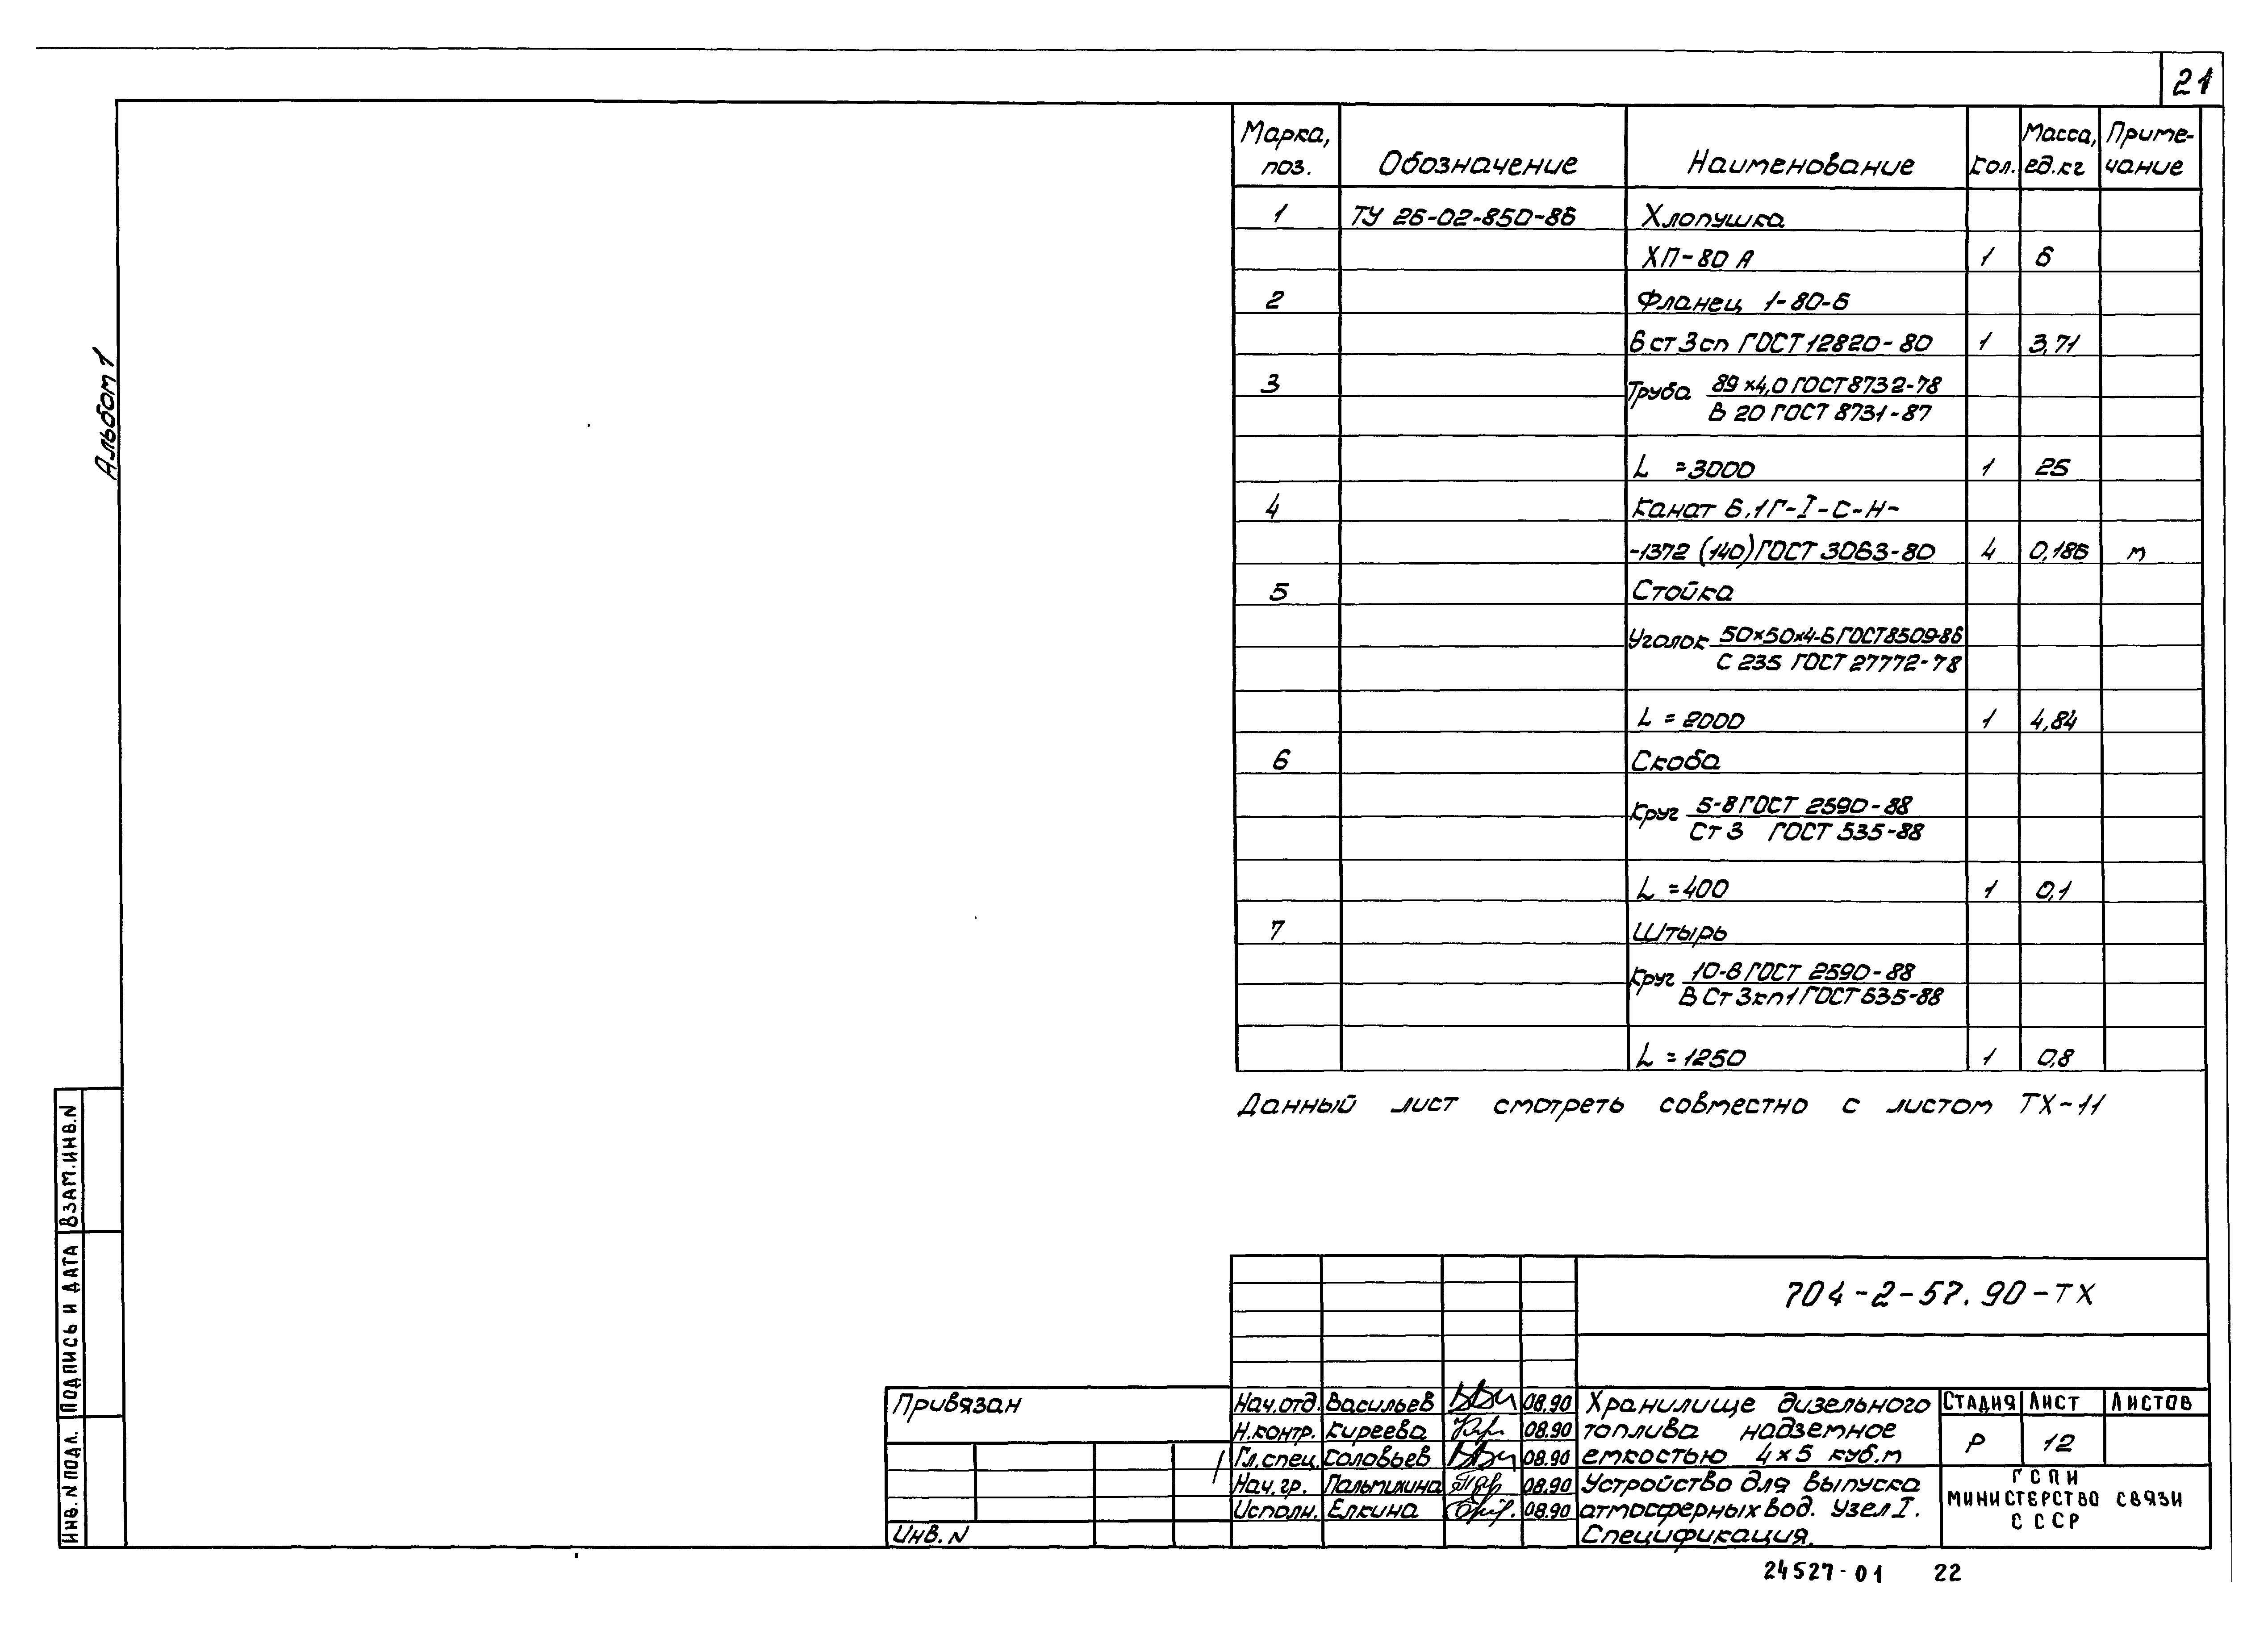 21
Альбом 1
Марка, поз. Обозначение Наименование Кол. Масса, ед.кг Приме-чание
1 ТУ 26-02-850-86 Хлопушка
ХП-80 А 1 6
2 Фланец 1-80-6
В ст 3 сп ГОСТ 12820-80 1 3,71
3 Труба 89×4,0 ГОСТ 8732-78
В 20 ГОСТ 8731-87
L =3000 1 25
4 Канат 6.1Г-I-С-Н-
-1372 (140) ГОСТ 3063-80 4 0,186 м
5 Стойка
Уголок 50×50×4-Б ГОСТ 8509-86
С 235 ГОСТ 27772-78
L = 2000 1 4,84
6 Скоба
Круг 5-В ГОСТ 2590-88
Ст 3 ГОСТ 535-88
L =400 1 0,1
7 Штырь
Круг 10-В ГОСТ 2590-88
В Ст 3кп1 ГОСТ 535-88
L = 1250 1 0,8
Данный лист смотреть совместно с листом ТХ-11
704-2-57.90-ТХ
Привязан
Инв. N
Нач.отд. Васильев 08.90
Н.контр. Киреева 08.90
Гл.спец. Соловьев 08.90
Нач.гр. Пальмихина 08.90
Исполн. Елкина 08.90
Хранилище дизельного
топлива надземное
емкостью 4×5 куб.м
Устройство для выпуска
атмосферных вод. Узел I.
Спецификация.
СТАДИЯ ЛИСТ ЛИСТОВ
Р 12
ГСПИ
МИНИСТЕРСТВО СВЯЗИ
СССР
ВЗАМ.ИНВ.N
ПОДПИСЬ И ДАТА
ИНВ. N ПОДЛ.
24527-01 22